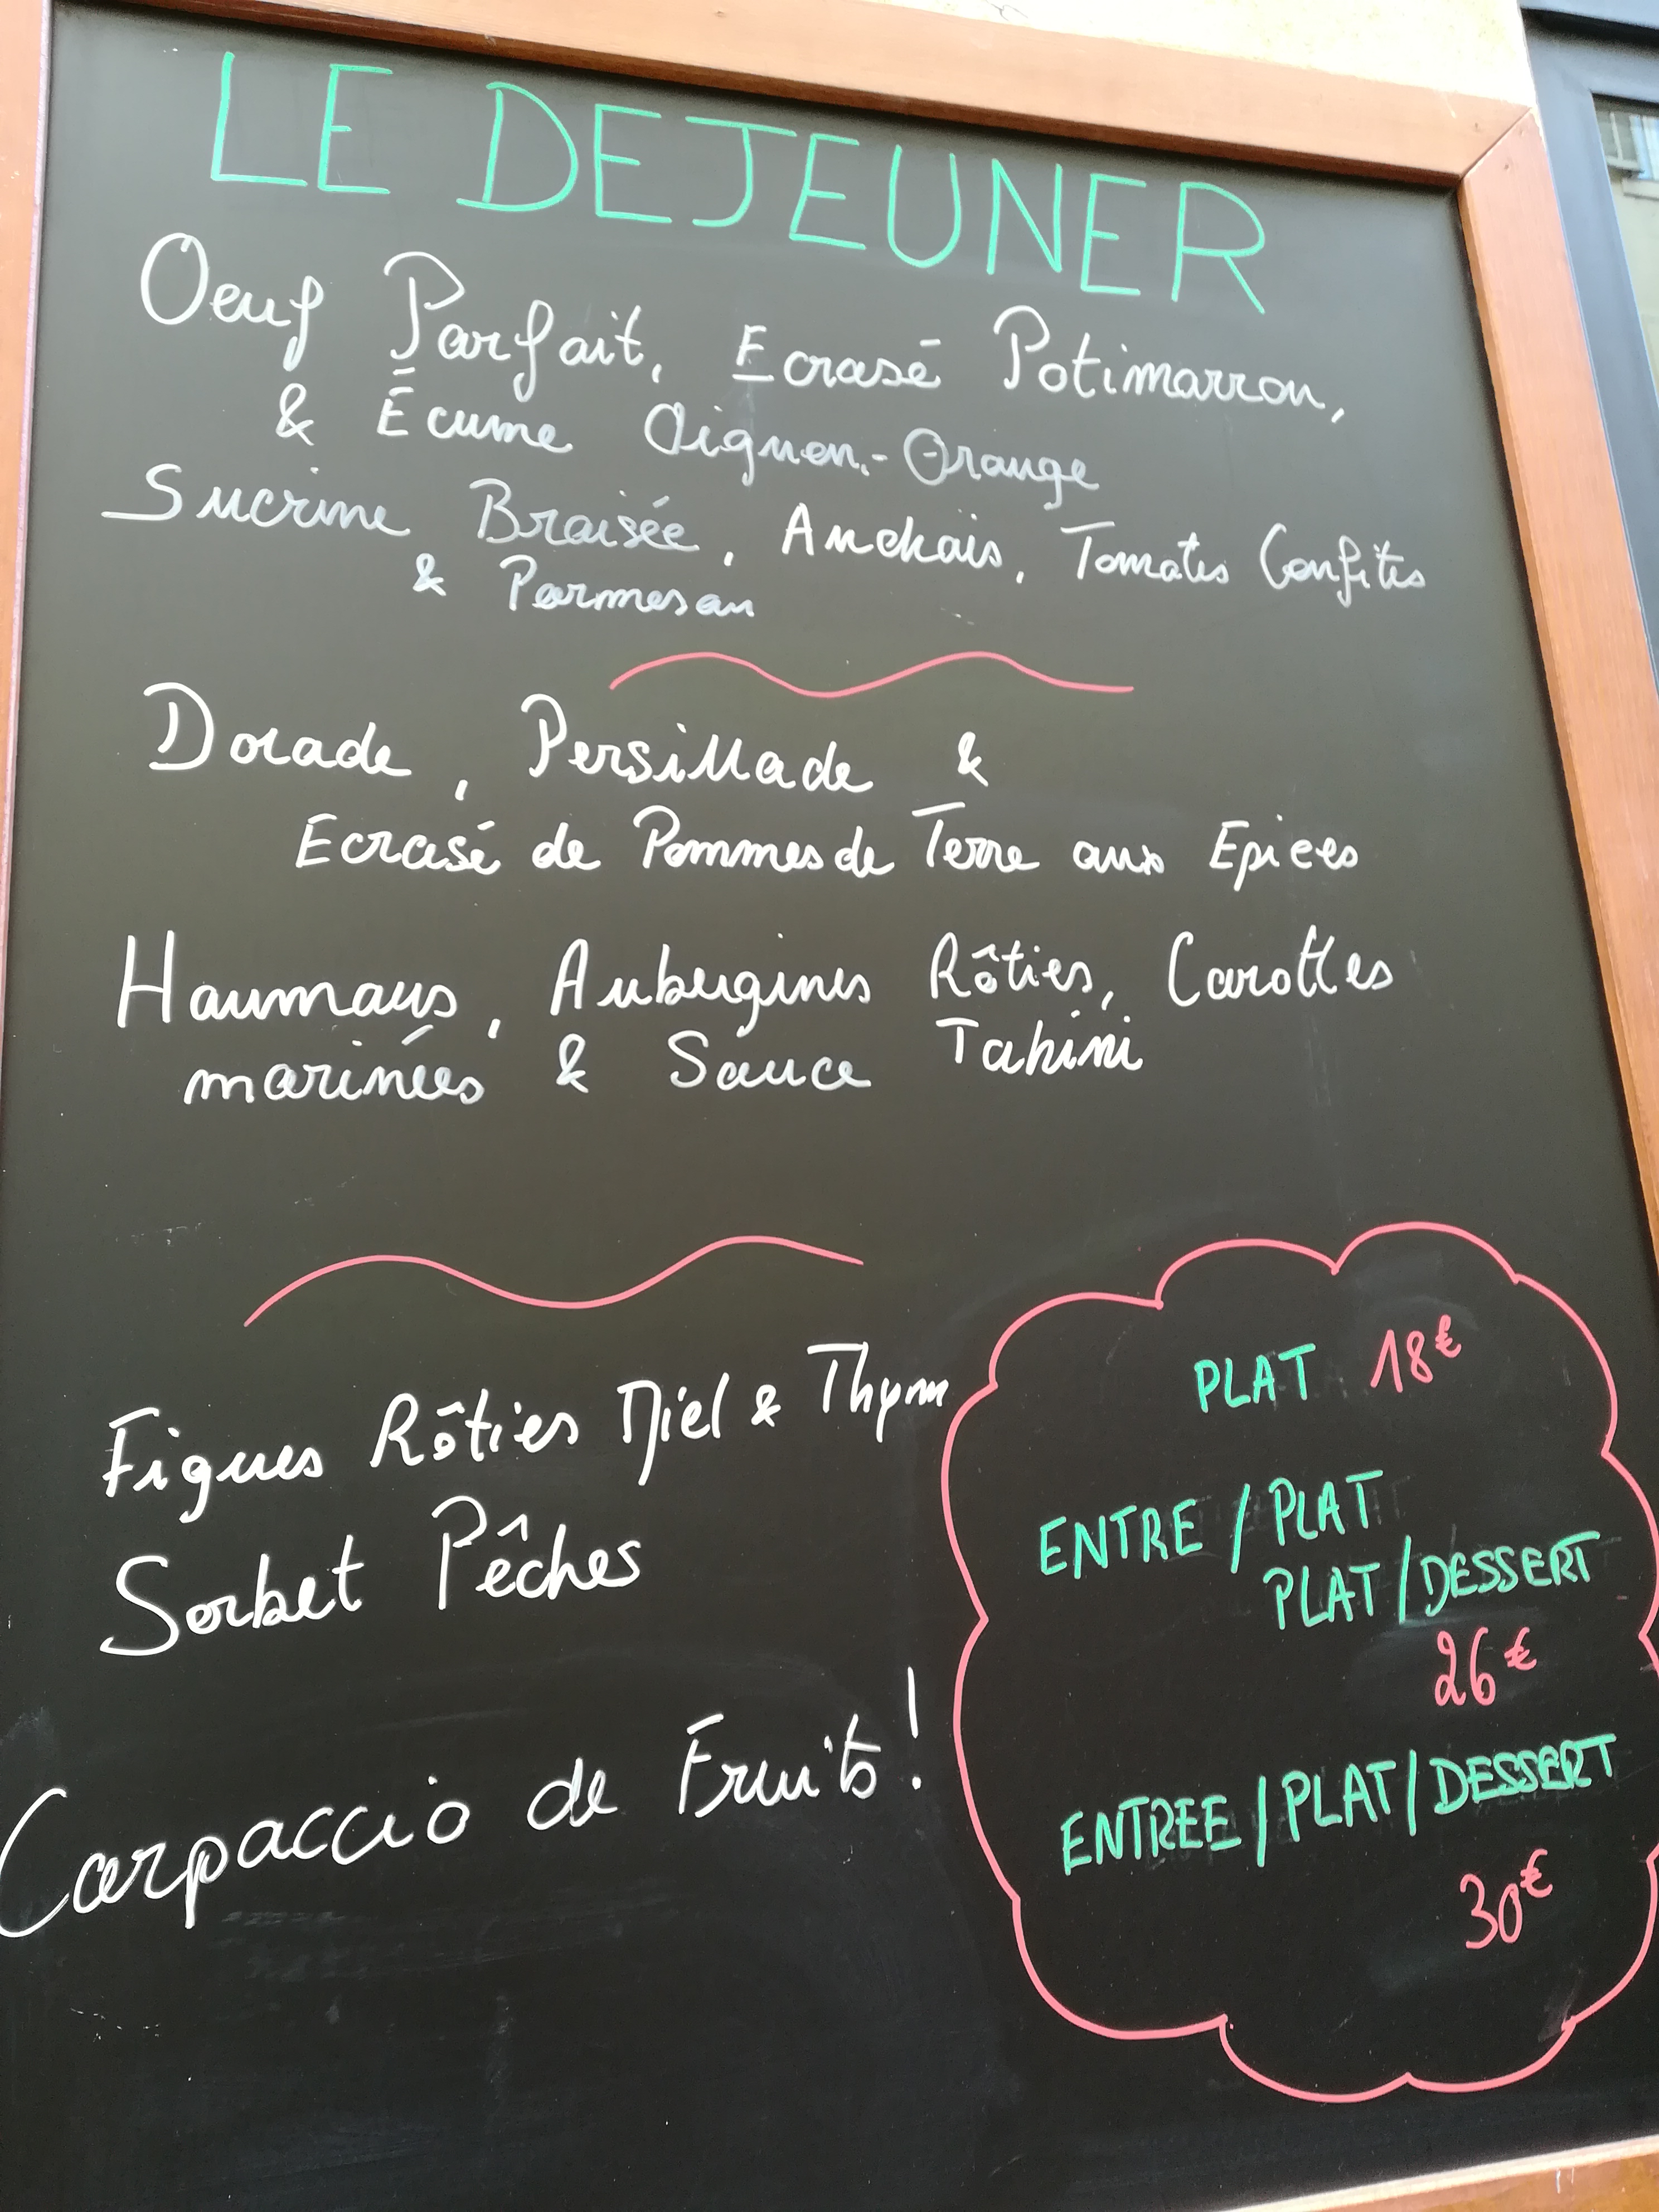 LE DEJEUNER
Oeuf Parfait, Ecrasé Potimarron,
& Écume Oignon-Orange
Sucrine Braisée, Anchois, Tomates Confites
& Parmesan
Dorade, Persillade &
Ecrasé de Pommes de Terre aux Epices
Houmous, Aubergines Rôties, Carottes
marinées & Sauce Tahini
Figues Rôties Miel & Thym
Sorbet Pêches
Carpaccio de Fruits!
PLAT 18€
ENTRE / PLAT
PLAT / DESSERT
26€
ENTREE / PLAT / DESSERT
30€